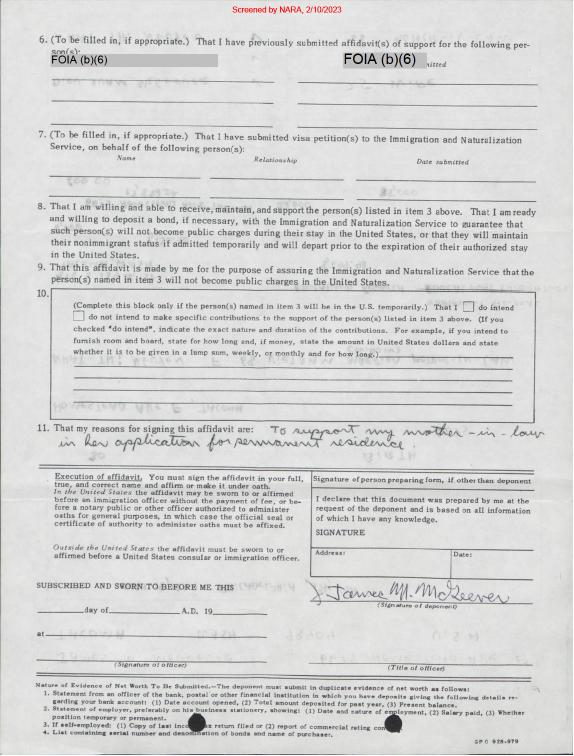 Screened by NARA, 2/10/2023
6. (To be filled in, if appropriate.) That I have previously submitted affidavit(s) of support for the following per-
son(s):
FOIA (b)(6) FOIA (b)(6) mitted
7. (To be filled in, if appropriate.) That I have submitted visa petition(s) to the Immigration and Naturalization
Service, on behalf of the following person(s):
Name Relationship Date submitted
8. That I am willing and able to receive, maintain, and support the person(s) listed in item 3 above. That I am ready
and willing to deposit a bond, if necessary, with the Immigration and Naturalization Service to guarantee that
such person(s) will not become public charges during their stay in the United States, or that they will maintain
their nonimmigrant status if admitted temporarily and will depart prior to the expiration of their authorized stay
in the United States.
9. That this affidavit is made by me for the purpose of assuring the Immigration and Naturalization Service that the
person(s) named in item 3 will not become public charges in the United States.
10.
(Complete this block only if the person(s) named in item 3 will be in the U.S. temporarily.) That I do intend
do not intend to make specific contributions to the support of the person(s) listed in item 3 above. (If you
checked "do intend", indicate the exact nature and duration of the contributions. For example, if you intend to
furnish room and board, state for how long and, if money, state the amount in United States dollars and state
whether it is to be given in a lump sum, weekly, or monthly and for how long.)
11. That my reasons for signing this affidavit are: To support my mother-in-law
in her application for permanent residence.
Execution of affidavit. You must sign the affidavit in your full,
true, and correct name and affirm or make it under oath.
In the United States the affidavit may be sworn to or affirmed
before an immigration officer without the payment of fee, or be-
fore a notary public or other officer authorized to administer
oaths for general purposes, in which case the official seal or
certificate of authority to administer oaths must be affixed.
Outside the United States the affidavit must be sworn to or
affirmed before a United States consular or immigration officer.
Signature of person preparing form, if other than deponent
I declare that this document was prepared by me at the
request of the deponent and is based on all information
of which I have any knowledge.
SIGNATURE
Address: Date:
SUBSCRIBED AND SWORN TO BEFORE ME THIS
James M. McKeever
(Signature of deponent)
day of A.D. 19
at
(Signature of officer) (Title of officer)
Nature of Evidence of Net Worth To Be Submitted.—The deponent must submit in duplicate evidence of net worth as follows:
1. Statement from an officer of the bank, postal or other financial institution in which you have deposits giving the following details re-
garding your bank account: (1) Date account opened, (2) Total amount deposited for past year, (3) Present balance.
2. Statement of employer, preferably on his business stationery, showing: (1) Date and nature of employment, (2) Salary paid, (3) Whether
position temporary or permanent.
3. If self-employed: (1) Copy of last income tax return filed or (2) report of commercial rating con
4. List containing serial number and denomination of bonds and name of purchaser.
GPO 928-979